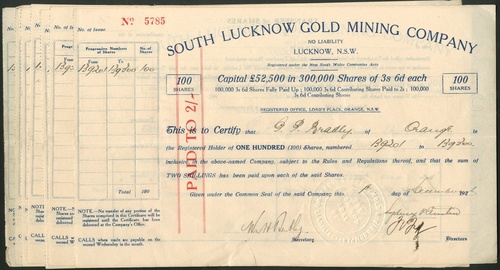 No. of Issue
Nº 5785
Progressive Numbers of Shares
No. of Shares
From
To
100
Total 100
NOTE.— No transfer of any portion of the Shares comprised in this Certificate will be registered until the Certificate has been delivered at the Company's Office.
CALLS when made are payable on the second Wednesday in the month.
PAID TO 2/-
SOUTH LUCKNOW GOLD MINING COMPANY
NO LIABILITY
LUCKNOW, N.S.W.
Registered under the New South Wales Companies Acts
100 SHARES
Capital £52,500 in 300,000 Shares of 3s 6d each
100,000 3s 6d Shares Fully Paid Up; 100,000 3s 6d Contributing Shares Paid to 2s; 100,000
3s 6d Contributing Shares
100 SHARES
REGISTERED OFFICE, LORD'S PLACE, ORANGE, N.S.W.
This is to Certify that G. P. Bradley of Orange is
the Registered Holder of ONE HUNDRED (100) Shares, numbered B9201 to B9300
inclusive in the above-named Company, subject to the Rules and Regulations thereof, and that the sum
of TWO SHILLINGS has been paid upon each of the said Shares.
Given under the Common Seal of the said Company this day of December
Secretary